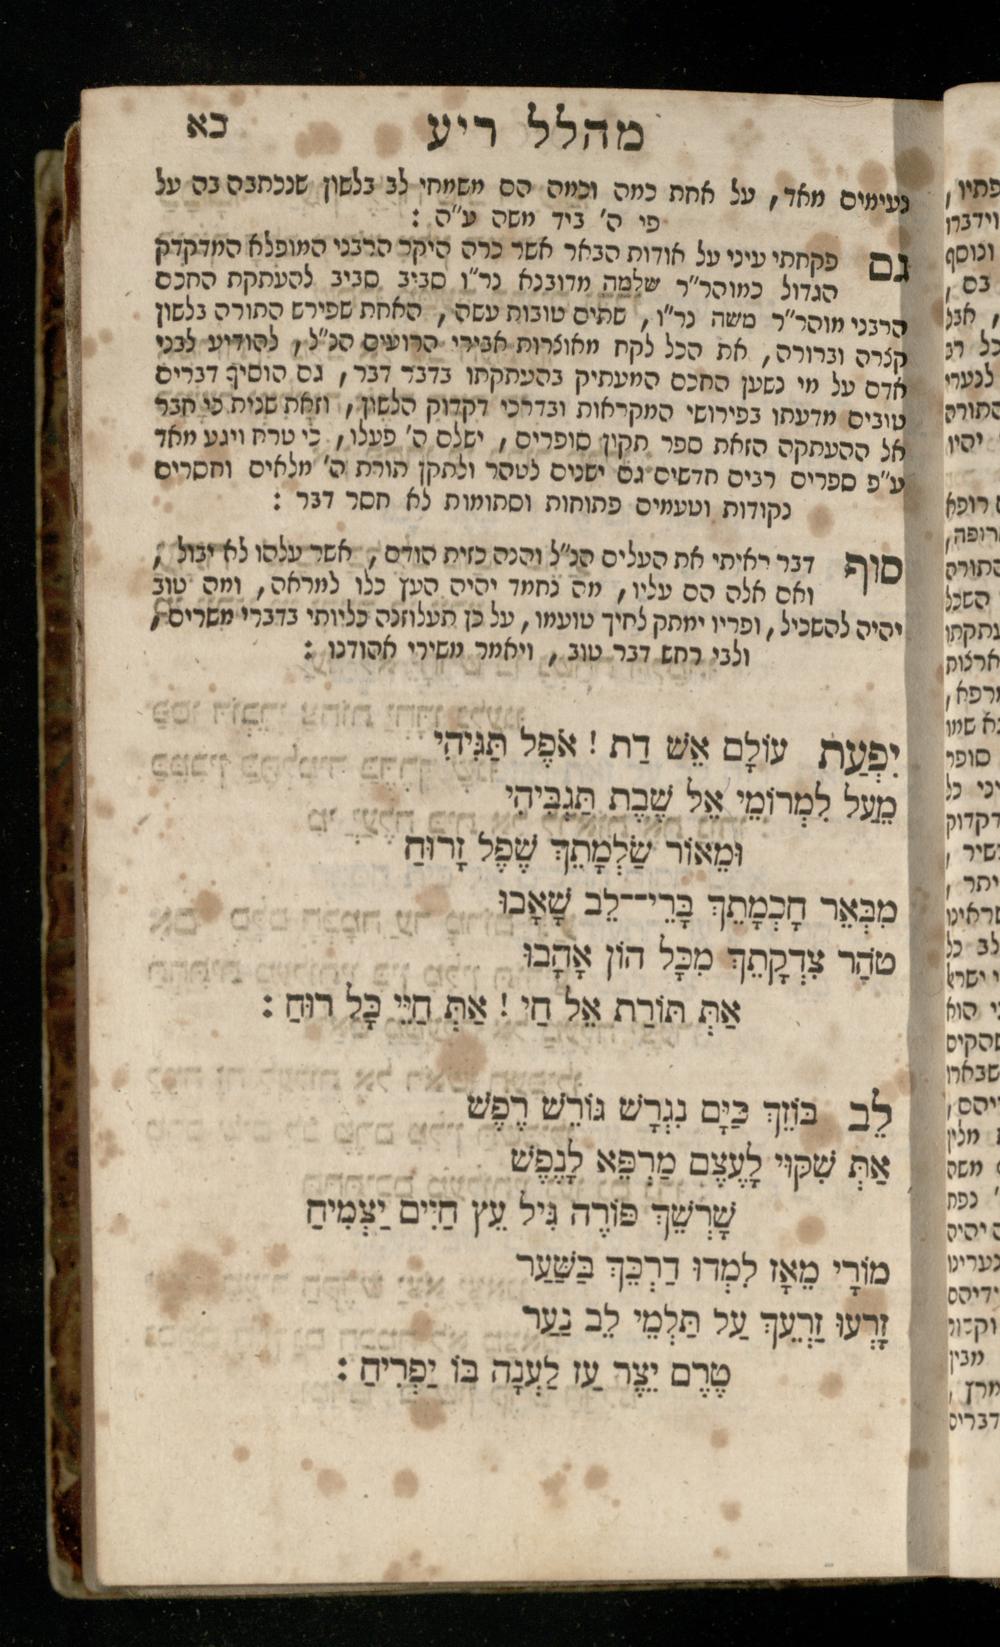 מהלל ריע
כא
נעימים מאד, על אחת כמה וכמה הם משמחי לב בלשון שנכתבה בה על
פי ה' ביד משה ע"ה :
גם פקחתי עיני על אודות הבאר אשר כרה היקר הרבני המופלא המדקדק
הגדול כמוהר"ר שלמה מדובנא נר"ו סביב סביב להעתקת החכם
הרבני מוהר"ר משה נר"ו, שתים טובות עשה, האחת שפירש התורה בלשון
קצרה וברורה, את הכל לקח מאוצרות אבירי הרועים הנ"ל, להודיע לבני
אדם על מי נשען החכם המעתיק בהעתקתו בדבר דבר, גם הוסיף דברים
טובים מדעתו בפירושי המקראות ובדרכי דקדוק הלשון, וזאת שנית כי חבר
אל ההעתקה הזאת ספר תקון סופרים, ישלם ה' פעלו, כי טרח ויגע מאד
ע"פ ספרים רבים חדשים גם ישנים לטהר ולתקן תורת ה' מלאים וחסרים
נקודות וטעמים פתוחות וסתומות לא חסר דבר :
סוף דבר ראיתי את העלים הנ"ל והנה כזית הודם, אשר עלהו לא יבול,
ואם אלה הם עליו, מה נחמד יהיה העץ כלו למראה, ומה טוב
יהיה להשכיל, ופריו ימתק לחיך טועמו, על כן תעלוזנה כליותי בדברי משרים,
ולבי רחש דבר טוב, ויאמר משירי אהודנו :
יִפְעַת עוֹלָם אֵשׁ דַת ! אֹפֶל תַּגִּיהִי
מֵעַל לִמְרוֹמֵי אֵל שֶׁבֶת תַּגְבִּיהִי
וּמֵאוֹר שַׂלְמָתֵךְ שֶׁפֶל זָרוּחַ
מִבְּאֵר חָכְמָתֵךְ בָּרֵי־־לֵב שָׁאָבוּ
טֹהַר צִדְקָתֵךְ מִכָּל הוֹן אָהָבוּ
אַתְּ תּוֹרַת אֵל חַי ! אַתְּ חַיֵּי כָּל רוּחַ :
לֵב בּוֹזֵךְ כַּיָּם נִגְרָשׁ גּוֹרֵשׁ רֶפֶשׁ
אַתְּ שִׁקּוּי לָעֶצֶם מַרְפֵּא לָנֶפֶשׁ
שָׁרְשֵׁךְ פּוֹרֶה גִּיל עֵץ חַיִּים יַצְמִיחַ
מוֹרָי מֵאָז לִמְדוּ דַרְכֵּךְ בַּשַּׁעַר
זָרְעוּ זַרְעֵךְ עַל תַּלְמֵי לֵב נַעַר
טֶרֶם יֵצֶר עַז לַעְנָה בּוֹ יַפְרִיחַ :